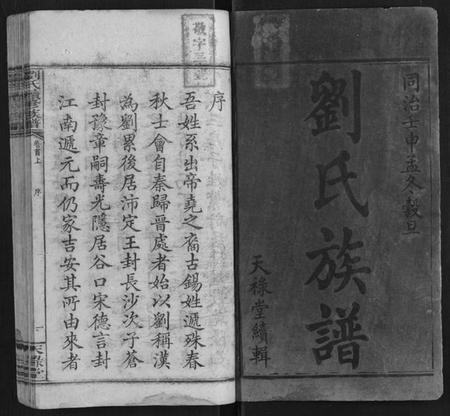 同治壬申孟冬穀旦
劉氏族譜
天祿堂續輯
敬字三
序
吾姓系出帝堯之裔古錫姓遞殊春
秋士會自秦歸晉處者始以劉稱漢
為劉累後居沛定王封長沙次子蒼
封豫章嗣壽光隱居谷口宋德言封
江南遞元而仍家吉安其所由來者
劉氏續修族譜
卷首上
序
一